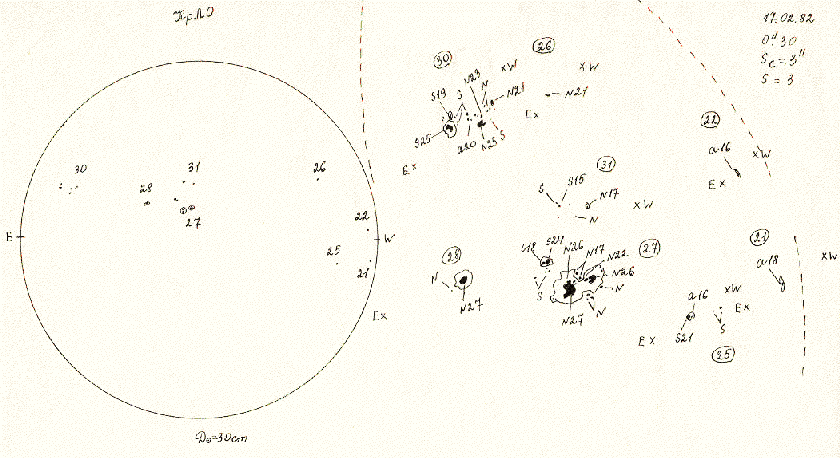 17.02.82
S = 3
30
31
26
28
27
22
25
21
E
W
Ex
D₀=30cm
30
S19
S
N23
N
xW
N21
S25
S
Ex
26
xW
N21
Ex
22
a16
xW
Ex
31
S
S15
N17
N
xW
28
N
N27
S18
S21
N26
N17
N22
27
N26
N
S
N27
N
21
a18
xW
a16
xW
Ex
Ex
S21
S
25